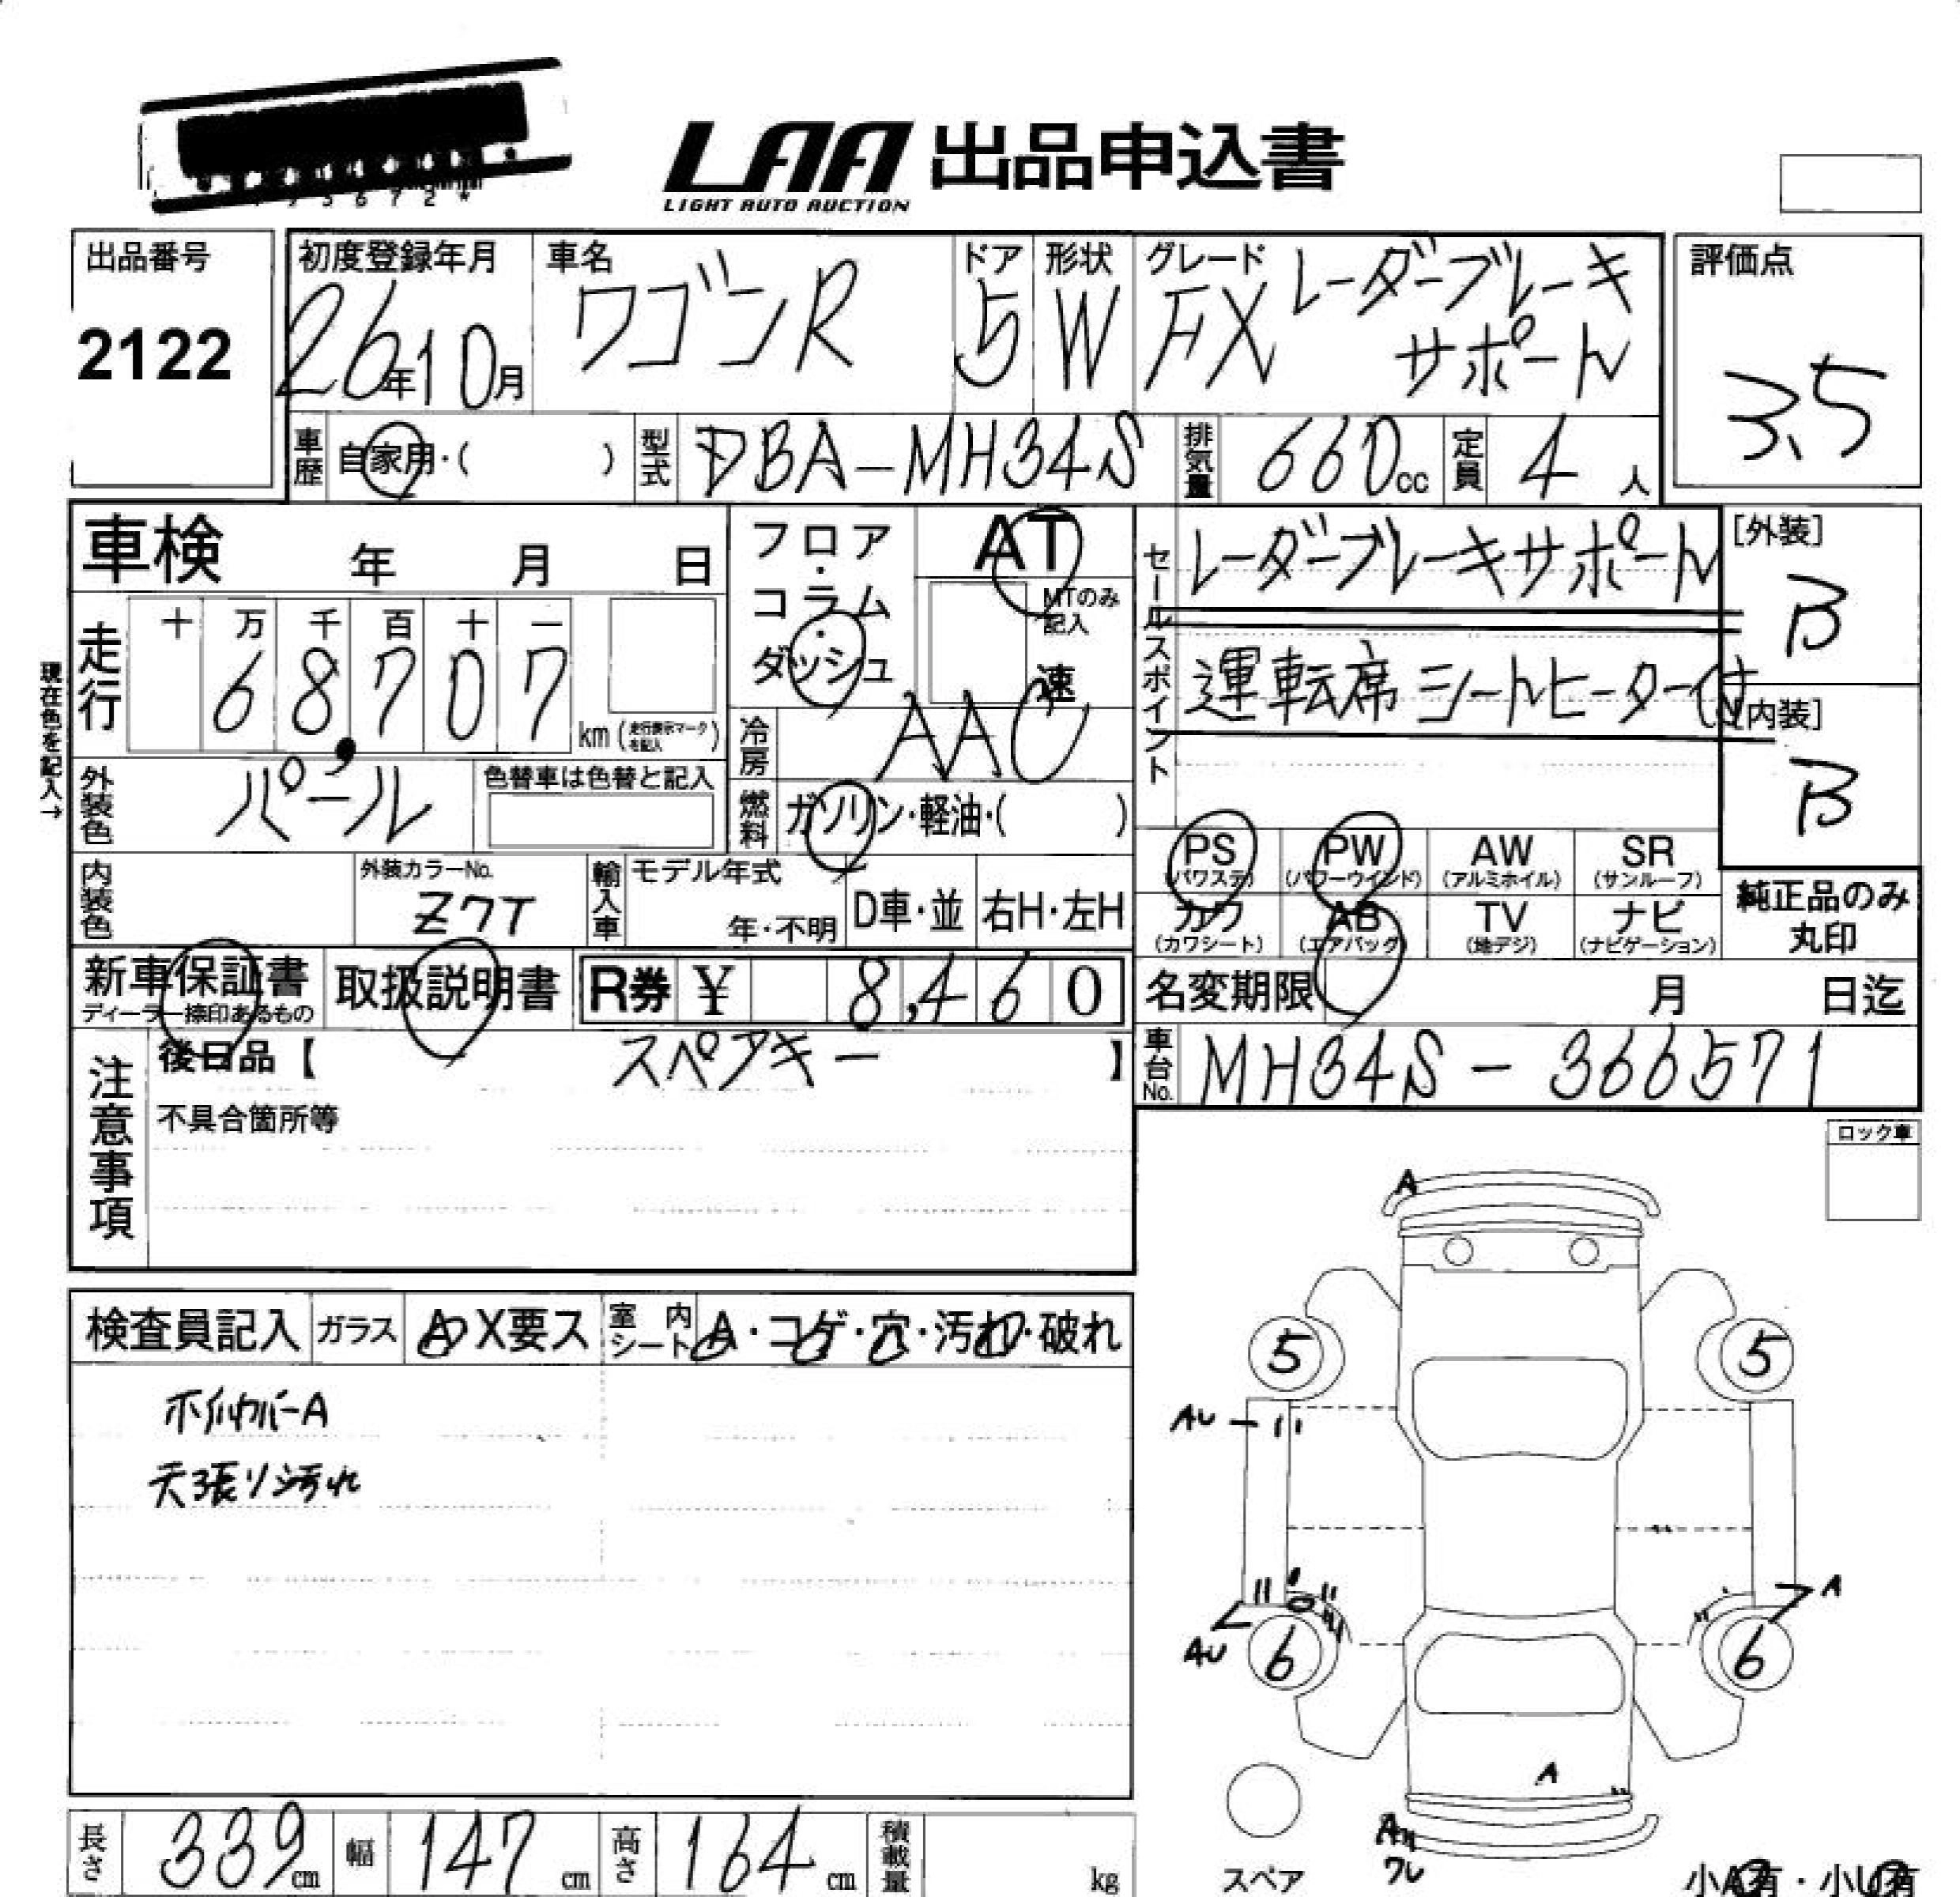 5672*
LAA 出品申込書
LIGHT AUTO AUCTION
出品番号
2122
初度登録年月
26年10月
車名
ワゴンR
ドア
5
形状
W
グレード
FX レーダーブレーキ
サポート
評価点
3.5
車歴 自家用・( )
型式 DBA-MH34S
排気量 660cc
定員 4人
車検 年 月 日
フロア・コラム・ダッシュ
AT
MTのみ記入
速
セールスポイント
レーダーブレーキサポート
運転席シートヒーター付
[外装]
B
[内装]
B
現在色を記入→
走行
十 万 千 百 十 一
68,707
km(走行表示マークを記入)
冷房 AAC
外装色 パール
色替車は色替と記入
燃料 ガソリン・軽油・( )
内装色
外装カラーNo.
Z7T
輸入車
モデル年式
年・不明
D車・並
右H・左H
PS
(パワステ)
PW
(パワーウインド)
AW
(アルミホイル)
SR
(サンルーフ)
カワ
(カワシート)
AB
(エアバッグ)
TV
(地デジ)
ナビ
(ナビゲーション)
純正品のみ
丸印
新車保証書
ディーラー捺印あるもの
取扱説明書
R券 ¥ 8,460
名変期限 月 日迄
車台No. MH34S-366571
注意事項
後日品【 スペアキー 】
不具合箇所等
ロック車
検査員記入
ガラス
A X要ス
室内シート
A・コゲ・穴・汚れ・破れ
ホイルカバーA
天張り汚れ
A
5
5
AU
A
AU
6
6
A
A
ワレ
スペア
小A有・小U有
長さ 339cm
幅 147cm
高さ 164cm
積載量 kg